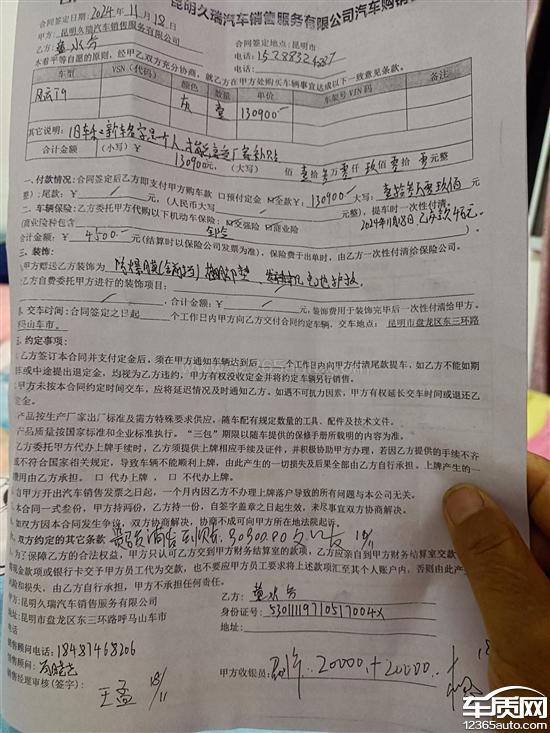 昆明久瑞汽车销售服务有限公司汽车购销
合同签定日期:2024年11月18日
甲方:昆明久瑞汽车销售服务有限公司 合同签定地点:昆明市
乙方: 电话:
电话:
本着平等自愿的原则,经甲乙双方充分协商,就乙方在甲方处购买车辆事宜达成以下一致意见条款。
车型 VSN(代码) 颜色 数量 单价 车架号 VIN 码 备注
风云T9 灰 壹 130900
其它说明:旧车和新车名字是一个人,才能
合计金额 (小写)¥ 130900元,(大写) 佰 壹拾 叁万 零仟 玖佰 零拾 零元整
一.付款情况:合同签定后乙方即支付甲方购车款 口预付定金 全款¥:130900 大写:壹拾叁万零玖佰元
整);尾款:¥ / 元,(人民币大写 / 元整),提车时一次性付清。
二.车辆保险:乙方委托甲方代购以下机动车保险: 交强险 商业险 2024年11月18日,乙方
(商业险种包含 全险 )
合计金额:¥ 4500 元(结算时以保险公司发票为准),保险费于出单时,由乙方一次性付清给保险公司。
三.装饰:
甲方赠送乙方装饰为
乙方自费委托甲方进行的装饰项目:
/ ,合计金额: / 元,装饰费用于装饰完毕后一次性付清给甲方。
.交车时间:合同签定之日起 / 个工作日内甲方向乙方交付合同约定车辆,交车地点: 昆明市盘龙区东三环路
呼马山车市。
五.约定事项:
乙方签订本合同并支付定金后,须在甲方通知车辆达到后 个工作日内向甲方付清尾款提车,如乙方不能如期
车或中途提出退定金,均视为乙方违约,甲方有权没收定金并将约定车辆另行销售。
甲方未按本合同约定时间交车,应将延迟情况及时通知乙方。如遇不可抗力因素,甲方有权延长交车时间或退还乙
定金。
产品按生产厂家出厂标准及需方特殊要求供应,随车配有规定数量的工具、配件及技术文件。
产品质量按国家标准和企业标准执行。“三包”期限以随车提供的保修手册所载明的内容为准。
乙方委托甲方代办上牌手续时,乙方须提供上牌相应手续及证件,并积极协助甲方办理,若因乙方提供的手续不齐
或不符合国家相关规定,导致车辆不能顺利上牌,由此产生的一切损失及后果全部由乙方自行承担。上牌产生的一
费用由乙方承担。 口 代办上牌, 口 不代办上牌。
自甲方开出汽车销售发票之日起,一个月内因乙方不办理上牌落户导致的所有问题与本公司无关。
本合同一式叁份,甲方持两份,乙方持一份,自签字盖章之日起生效,未尽事宜双方协商解决。
如双方因本合同发生争议,双方协商解决,协商不成可向甲方所在地法院起诉。
双方约定的其它条款
为了保障乙方的合法权益,甲方只认可乙方交到甲方财务结算室的款项,乙方应亲自到甲方财务结算室交款
现金款项或银行卡交予甲方员工代为交款,也不要应甲方员工要求将上述款项汇至其个人账户内,否则由此产生
和损失,由乙方自行承担,甲方不承担任何责任。
方:昆明久瑞汽车销售服务有限公司 乙方:
址:昆明市盘龙区东三环路呼马山车市 身份证号:53011119710517004X
电话 地址:
销售顾问电话:18487468206
销售顾问:
销售经理审核(签字): 王孟 18/11 甲方收银员: 20000.+20000.
车质网
12365auto.com